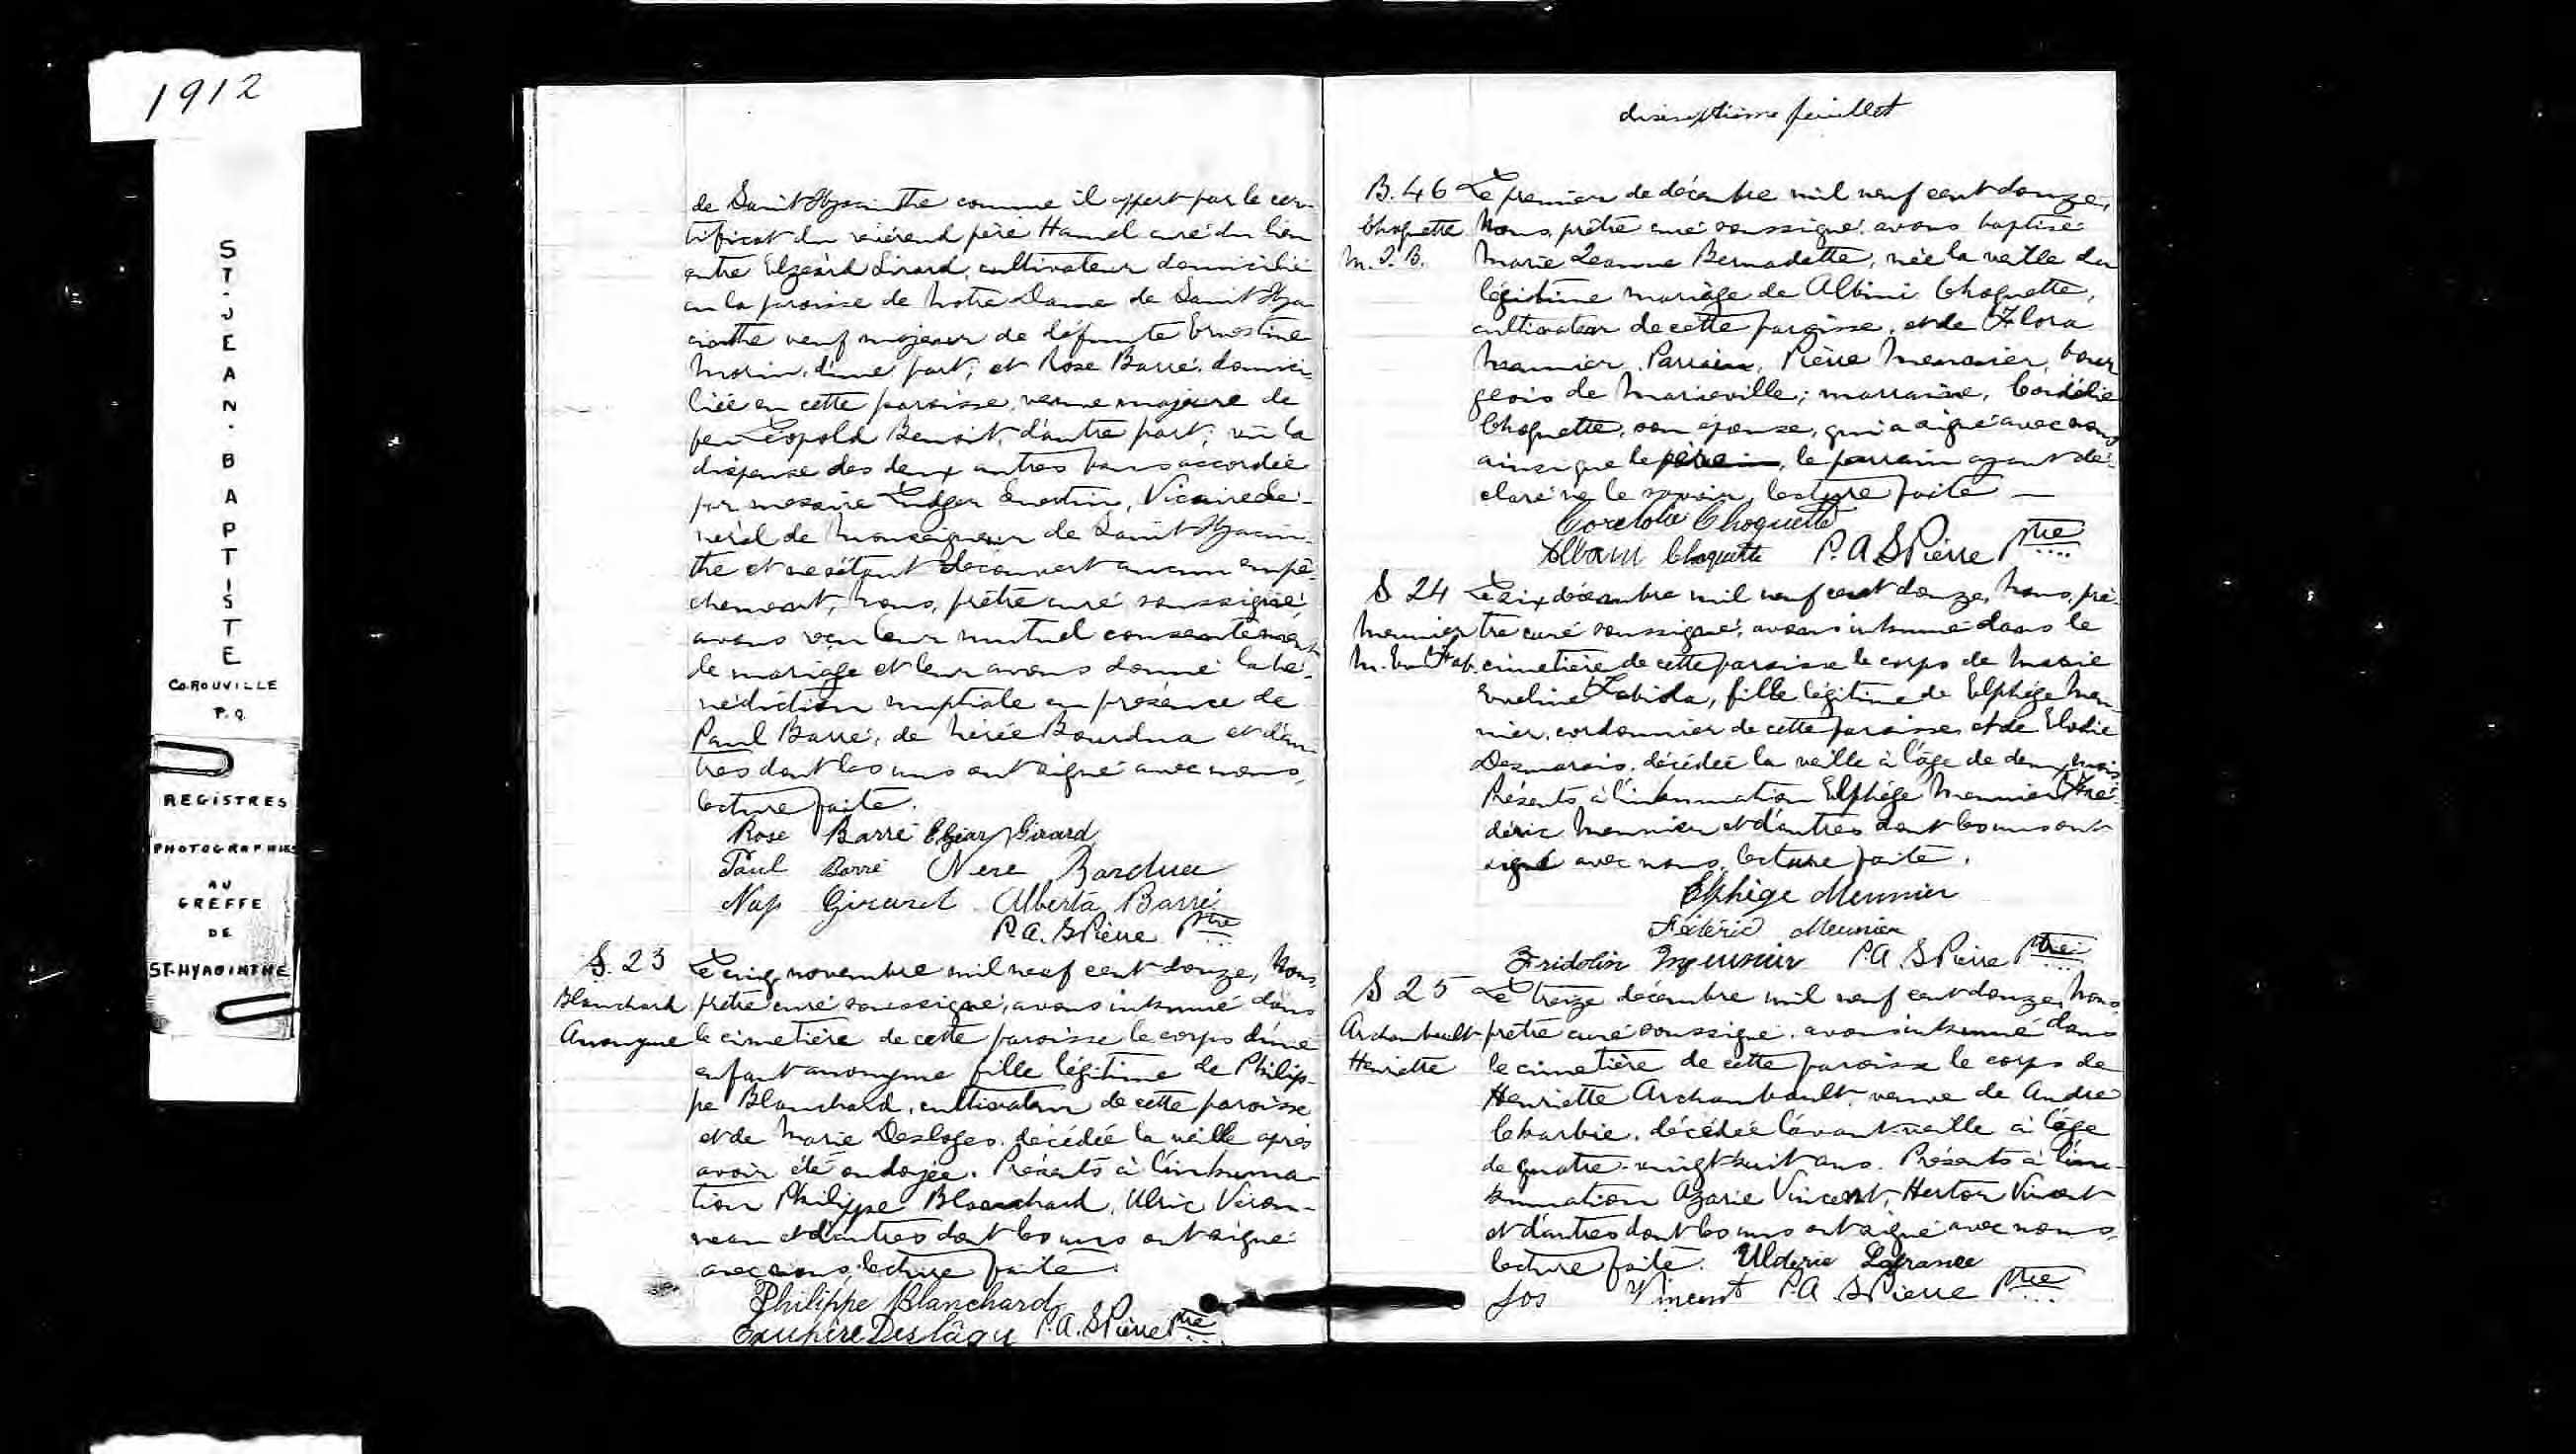 1912
ST-JEAN-BAPTISTE
Co. ROUVILLE
P.Q.
REGISTRES
PHOTOGRAPHIES
AU
GREFFE
DE
ST-HYACINTHE
de Saint Hyacinthe comme il appert par le cer-
tificat du révérend père Hamel curé du lieu
entre Elzéard Girard, cultivateur domicilié
en la paroisse de Notre Dame de Saint Hya-
cinthe veuf majeur de défunte Ernestine
Morin, d'une part; et Rose Barré, domici-
liée en cette paroisse, veuve majeure de
feu Léopold Benoit, d'autre part; vu la
dispense des deux autres bans accordée
par messire Ludger Vicaire Gé-
néral de Monseigneur de Saint Hyacin-
the et ne s'étant découvert aucun empê-
chement, Nous, prêtre curé soussigné,
avons reçu leur mutuel consentement
de mariage et leur avons donné la bé-
nédiction nuptiale en présence de
Paul Barré, de Nérée Bourdua et d'au-
tres dont les uns ont signé avec nous,
lecture faite.
Rose Barré Elzéar Girard
Paul Barré Nere Bardua
Nap Girard Alberta Barré
P.A. S Pierre Ptre
S. 23 Le cinq novembre mil neuf cent douze, Nous,
Blanchard prêtre curé soussigné, avons inhumé dans
Anonyme le cimetière de cette paroisse le corps d'une
enfant anonyme fille légitime de Philip-
pe Blanchard, cultivateur de cette paroisse
et de Marie Desloges, décédée la veille après
avoir été ondoyée. Présents à l'inhuma-
tion Philippe Blanchard, Ulric Véron-
neau et d'autres dont les uns ont signé
avec nous, lecture faite.
Philippe Blanchard
Exupère P.A. S Pierre Ptre
dixseptième feuillet
B. 46 Le premier de décembre mil neuf cent douze,
Choquette Nous, prêtre curé soussigné, avons baptisé
M. J. B. Marie Jeanne Bernadette, née la veille du
légitime mariage de Albini Choquette,
cultivateur de cette paroisse, et de Flora
Meunier. Parrain, Pierre Meunier, bour-
geois de Marieville; marraine, Cordélie
Choquette, son épouse, qui a signé avec nous
ainsi que le père, le parrain ayant dé-
claré ne le savoir, lecture faite
Cordelie Choquette
Albani Choquette P. A S Pierre Ptre
S 24 Le six décembre mil neuf cent douze, Nous, prê-
Meunier tre curé soussigné, avons inhumé dans le
M. Ev. Fab. cimetière de cette paroisse le corps de Marie
Eveline Fabiola, fille légitime de Elphège Meu-
nier, cordonnier de cette paroisse et de Elodie
Desmarais, décédée la veille à l'âge de deux mois
Présents à l'inhumation Elphège Meunier Fré-
déric Meunier et d'autres dont les uns ont
signé avec nous, lecture faite.
Elphège Meunier
Féderic Meunier
Fridolin Meunier P.A. S Pierre Ptre
S 25 Le treize décembre mil neuf cent douze, Nous
Archambault prêtre curé soussigné, avons inhumé dans
Henriette le cimetière de cette paroisse le corps de
Henriette Archambault veuve de André
décédée l'avant-veille à l'âge
de quatre-vingt huit ans. Présents à l'in-
humation Azarie Vincent, Hector Vincent
et d'autres dont les uns ont signé avec nous,
lecture faite. Ulderic Lafrance
Jos Vincent P.A S Pierre Ptre